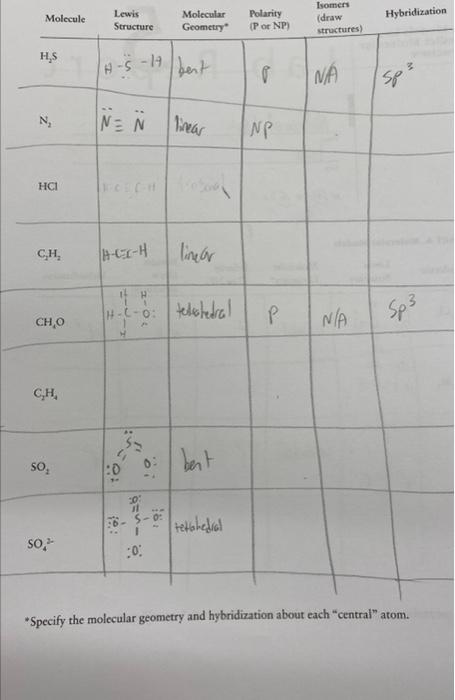 Molecule Lewis Structure Molecular Geometry* Polarity (P or NP) Isomers (draw structures) Hybridization
H₂S H-S-H bent P N/A sp³
N₂ N≡N linear NP
HCl
C₂H₂ H-C≡C-H linear
H H
CH₄O H-C-O: tetrahedral P N/A sp³
H
C₂H₄
S
SO₂ :O O: bent
:O:
:O-S-O: tetrahedral
SO₄²⁻ :O:
*Specify the molecular geometry and hybridization about each "central" atom.